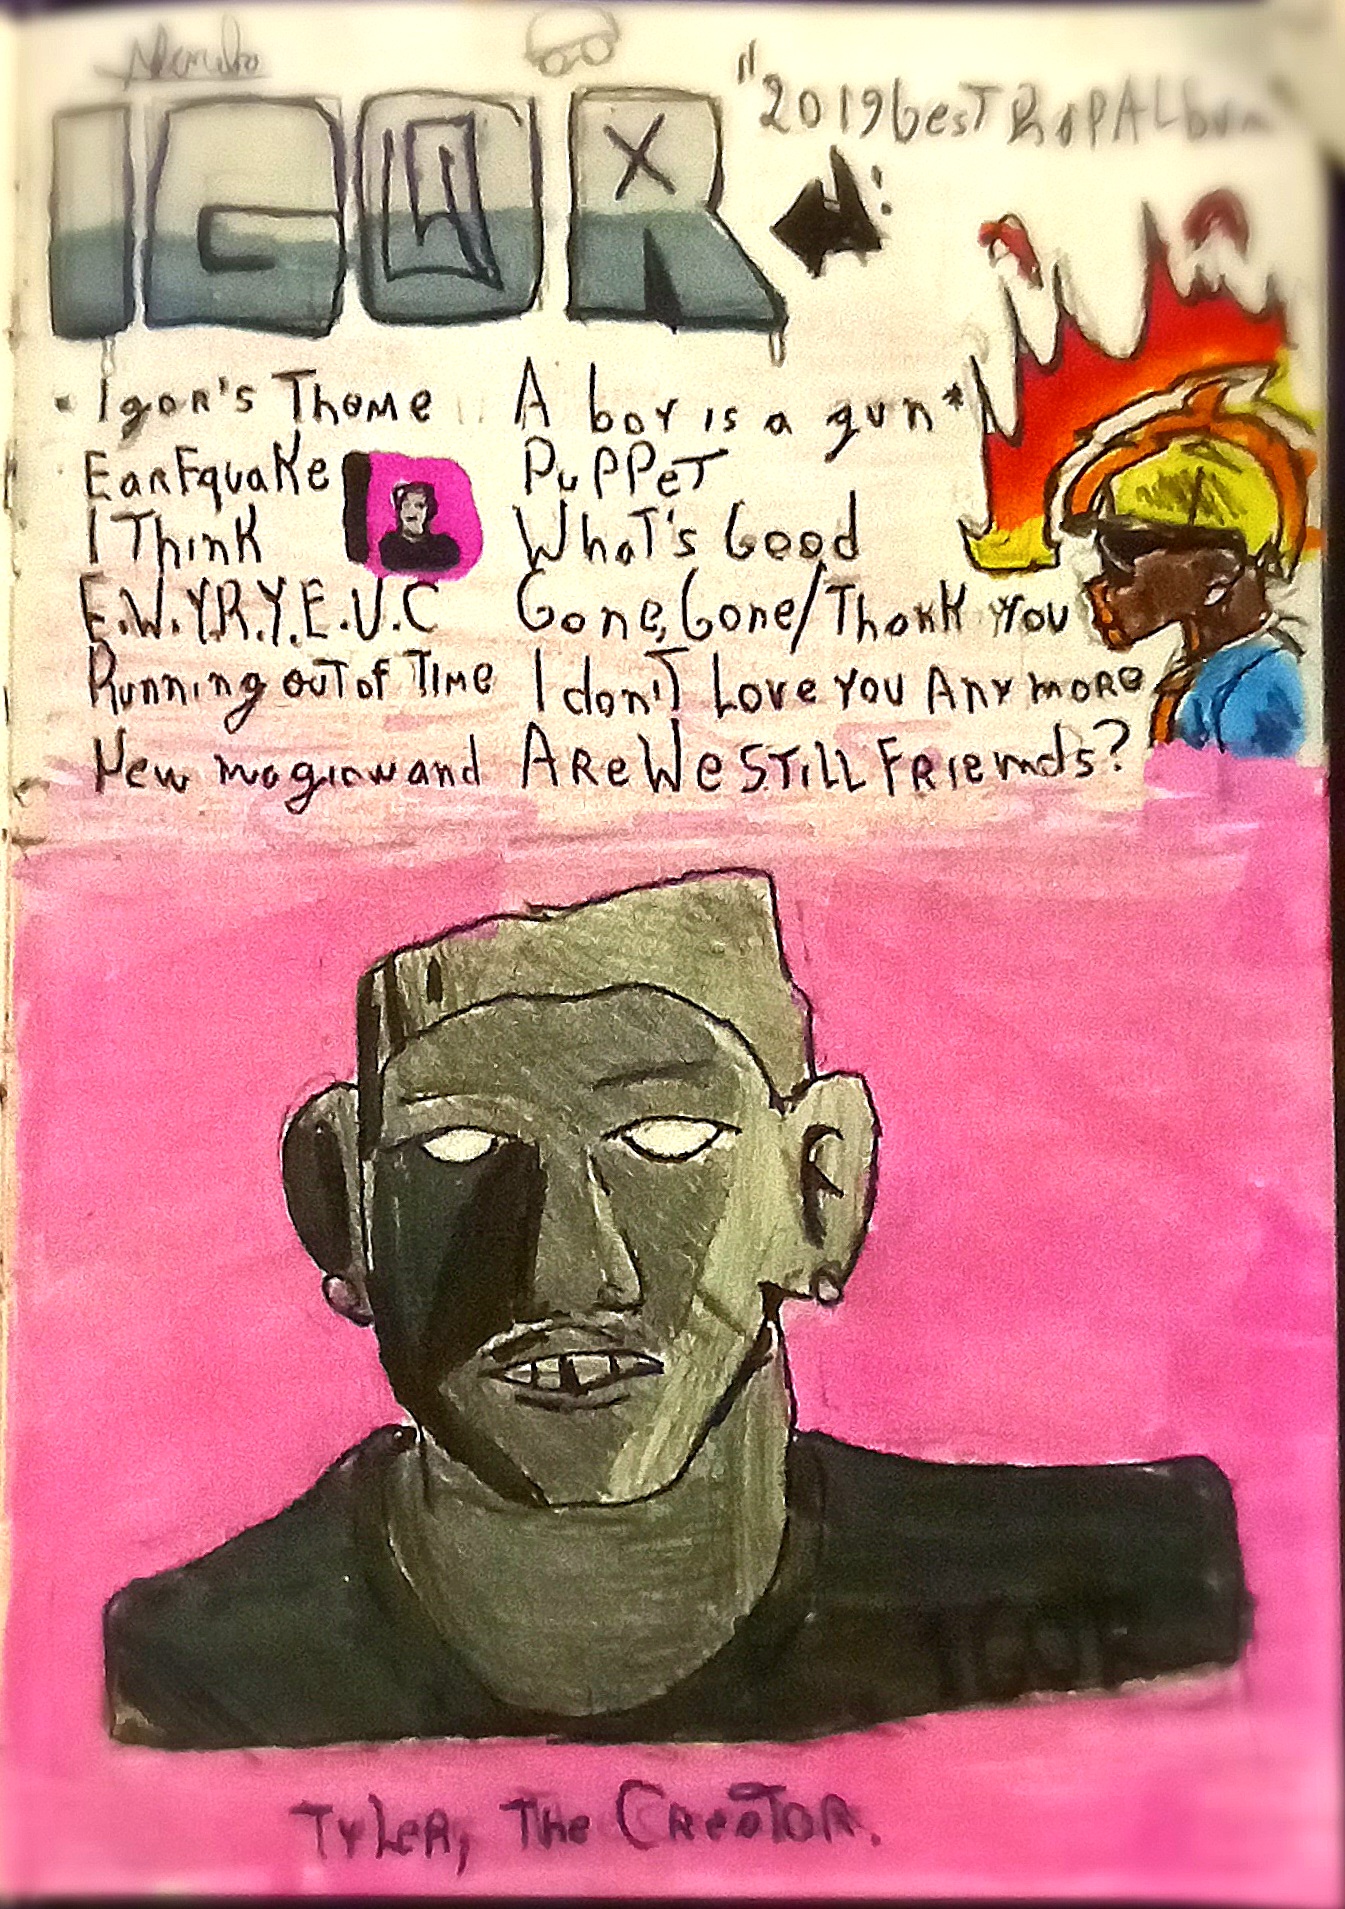 "2019 besT RapALbum
IGOR
Igor's Theme
EarFquaKe
I Think
E.W.Y.R.Y.E.U.C
Running ouT of TIME
New magicwand
A boy is a gun*
PuPPeT
WhaT's Good
Gone, Gone/Thank You
I don'T Love you Any more
Are We STiLL Friends?
IGOR
TyLer, The CreaTor.